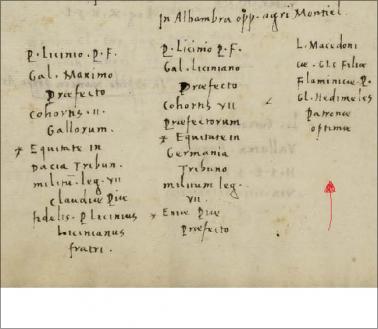 In Alhambra opp. agri Montiel.
P. Licinio. P. F.
Gal. Maximo
Præfecto
cohortis. II.
Gallorum.
Equitate in
Dacia Tribun.
militū leg. VII
claudiæ Piæ
fidelis. P Licinius
Licinianus
fratri.
P. Licinio P. F.
Gal. Liciniano
Præfecto
cohortis VII
Præfectorum
Equitate in
Germania
Tribuno
militum leg.
VII.
Piæ
Præfecto
L. Macedoni
cæ. Filiæ
Flaminicæ. P.
Gl. Hedimeles
Patronæ
optimæ